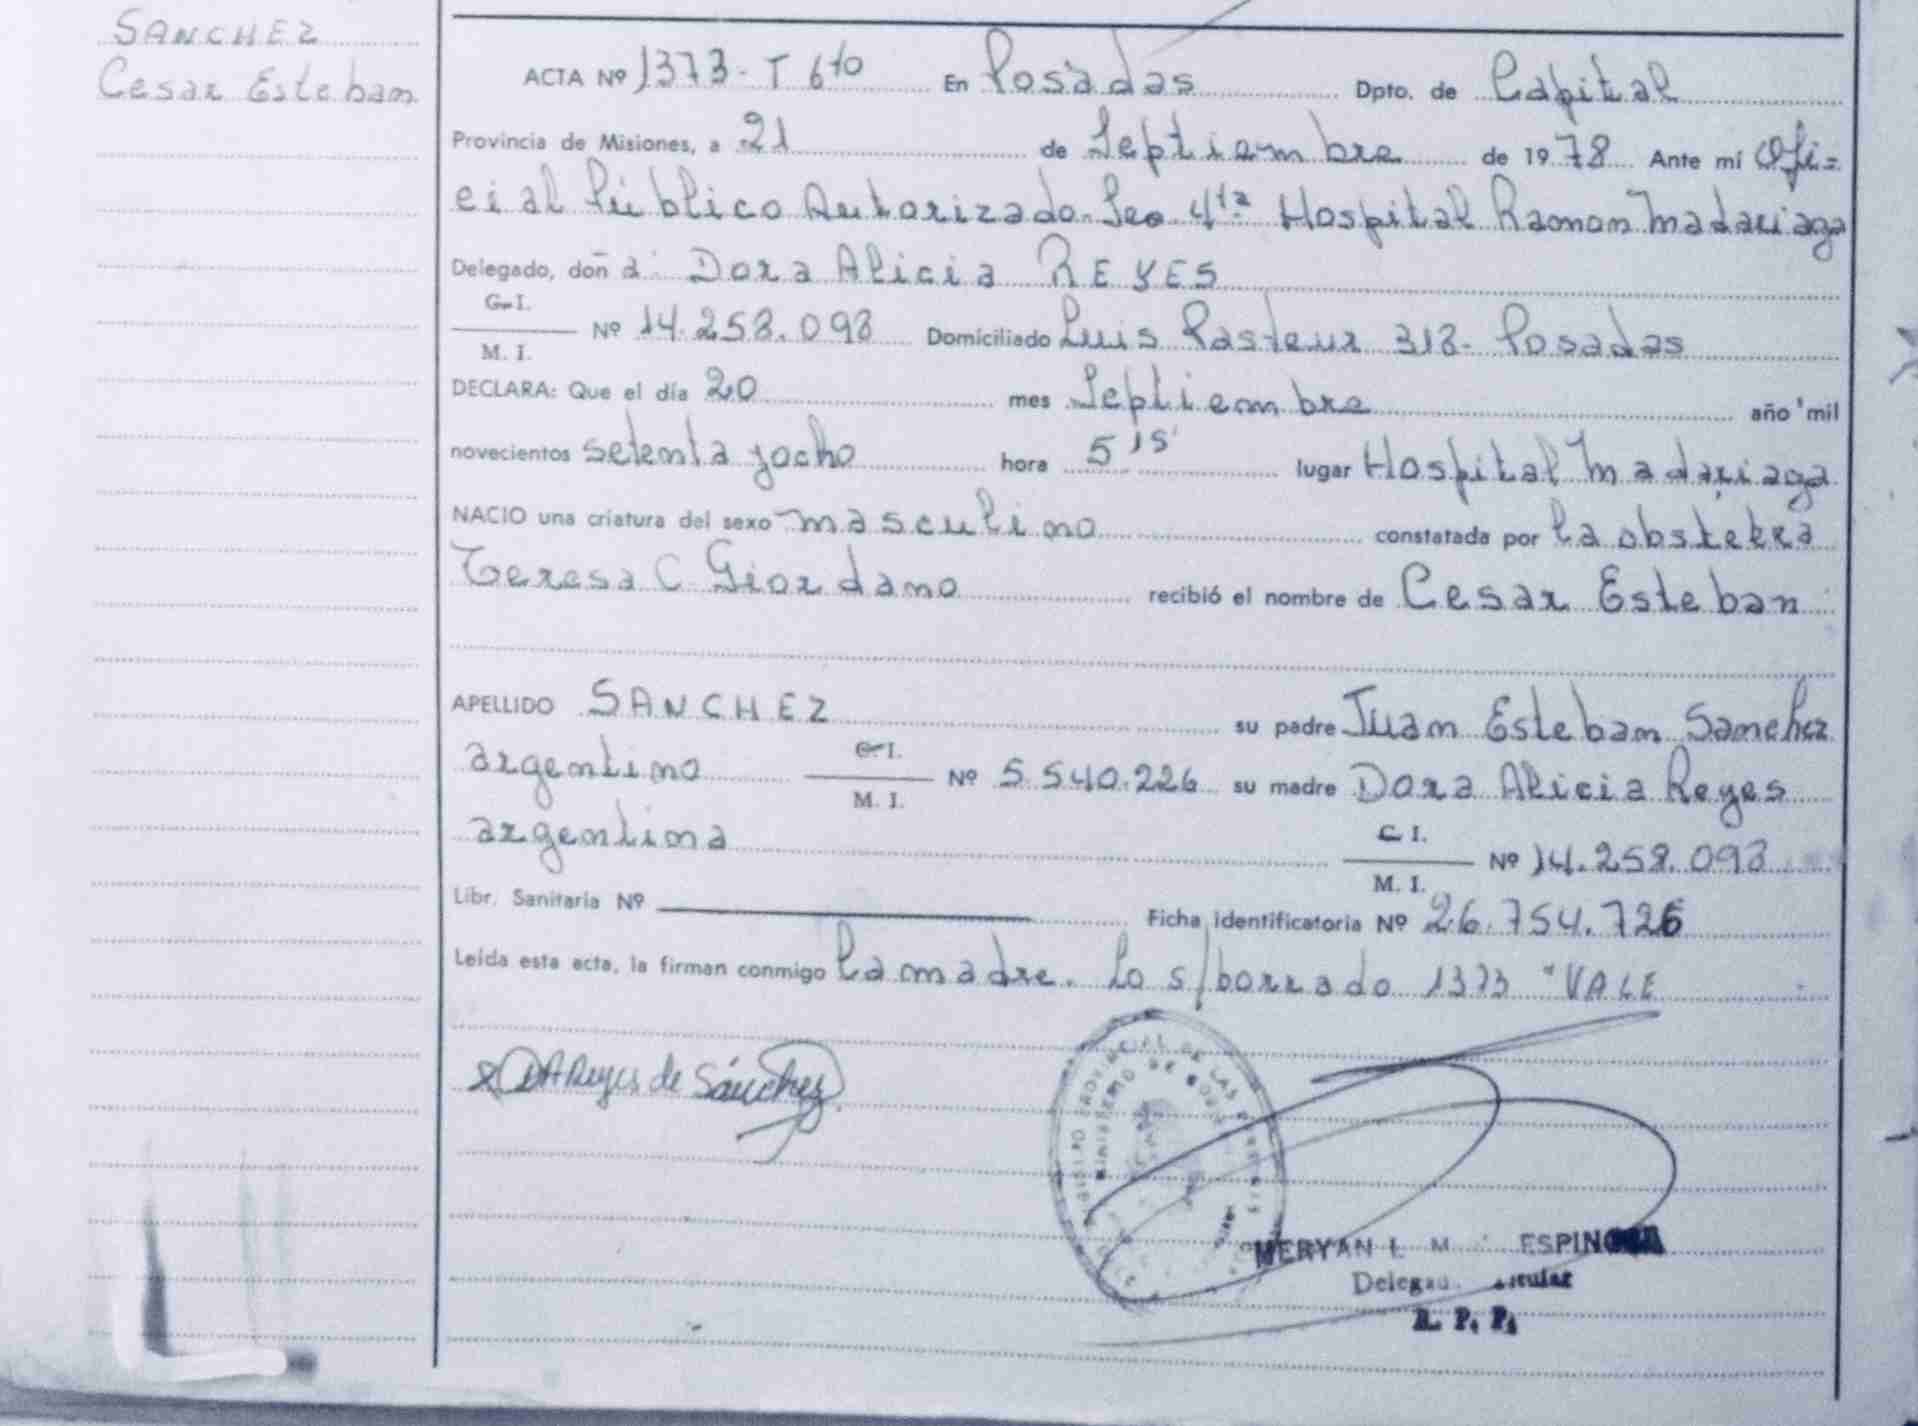 SANCHEZ
Cesar Esteban
ACTA Nº 1373 - T 6to En Posadas Dpto. de Capital
Provincia de Misiones, a 21 de Septiembre de 1978 Ante mí Ofi=
cial Público Autorizado Sec 4ta Hospital Ramon Madariaga
Delegado, doña Dora Alicia REYES
C.I.
M. I.
Nº 14.258.093 Domiciliado Luis Pasteur 313 - Posadas
DECLARA: Que el día 20 mes Septiembre año mil
novecientos setenta y ocho hora 5 15' lugar Hospital Madariaga
NACIO una criatura del sexo masculino constatada por la obstetra
Teresa C Giordano recibió el nombre de Cesar Esteban
APELLIDO SANCHEZ su padre Juan Esteban Sanchez
argentino C.I. M. I. Nº 5.540.226 su madre Dora Alicia Reyes
argentina C I. M. I. Nº 14.258.093
Libr. Sanitaria Nº Ficha Identificatoria Nº 26.754.726
Leída esta acta, la firman conmigo la madre. Lo s/borrado 1373 "VALE
DAReyes de Sánchez
MERYAN L M ESPINOSA
R. P. P.